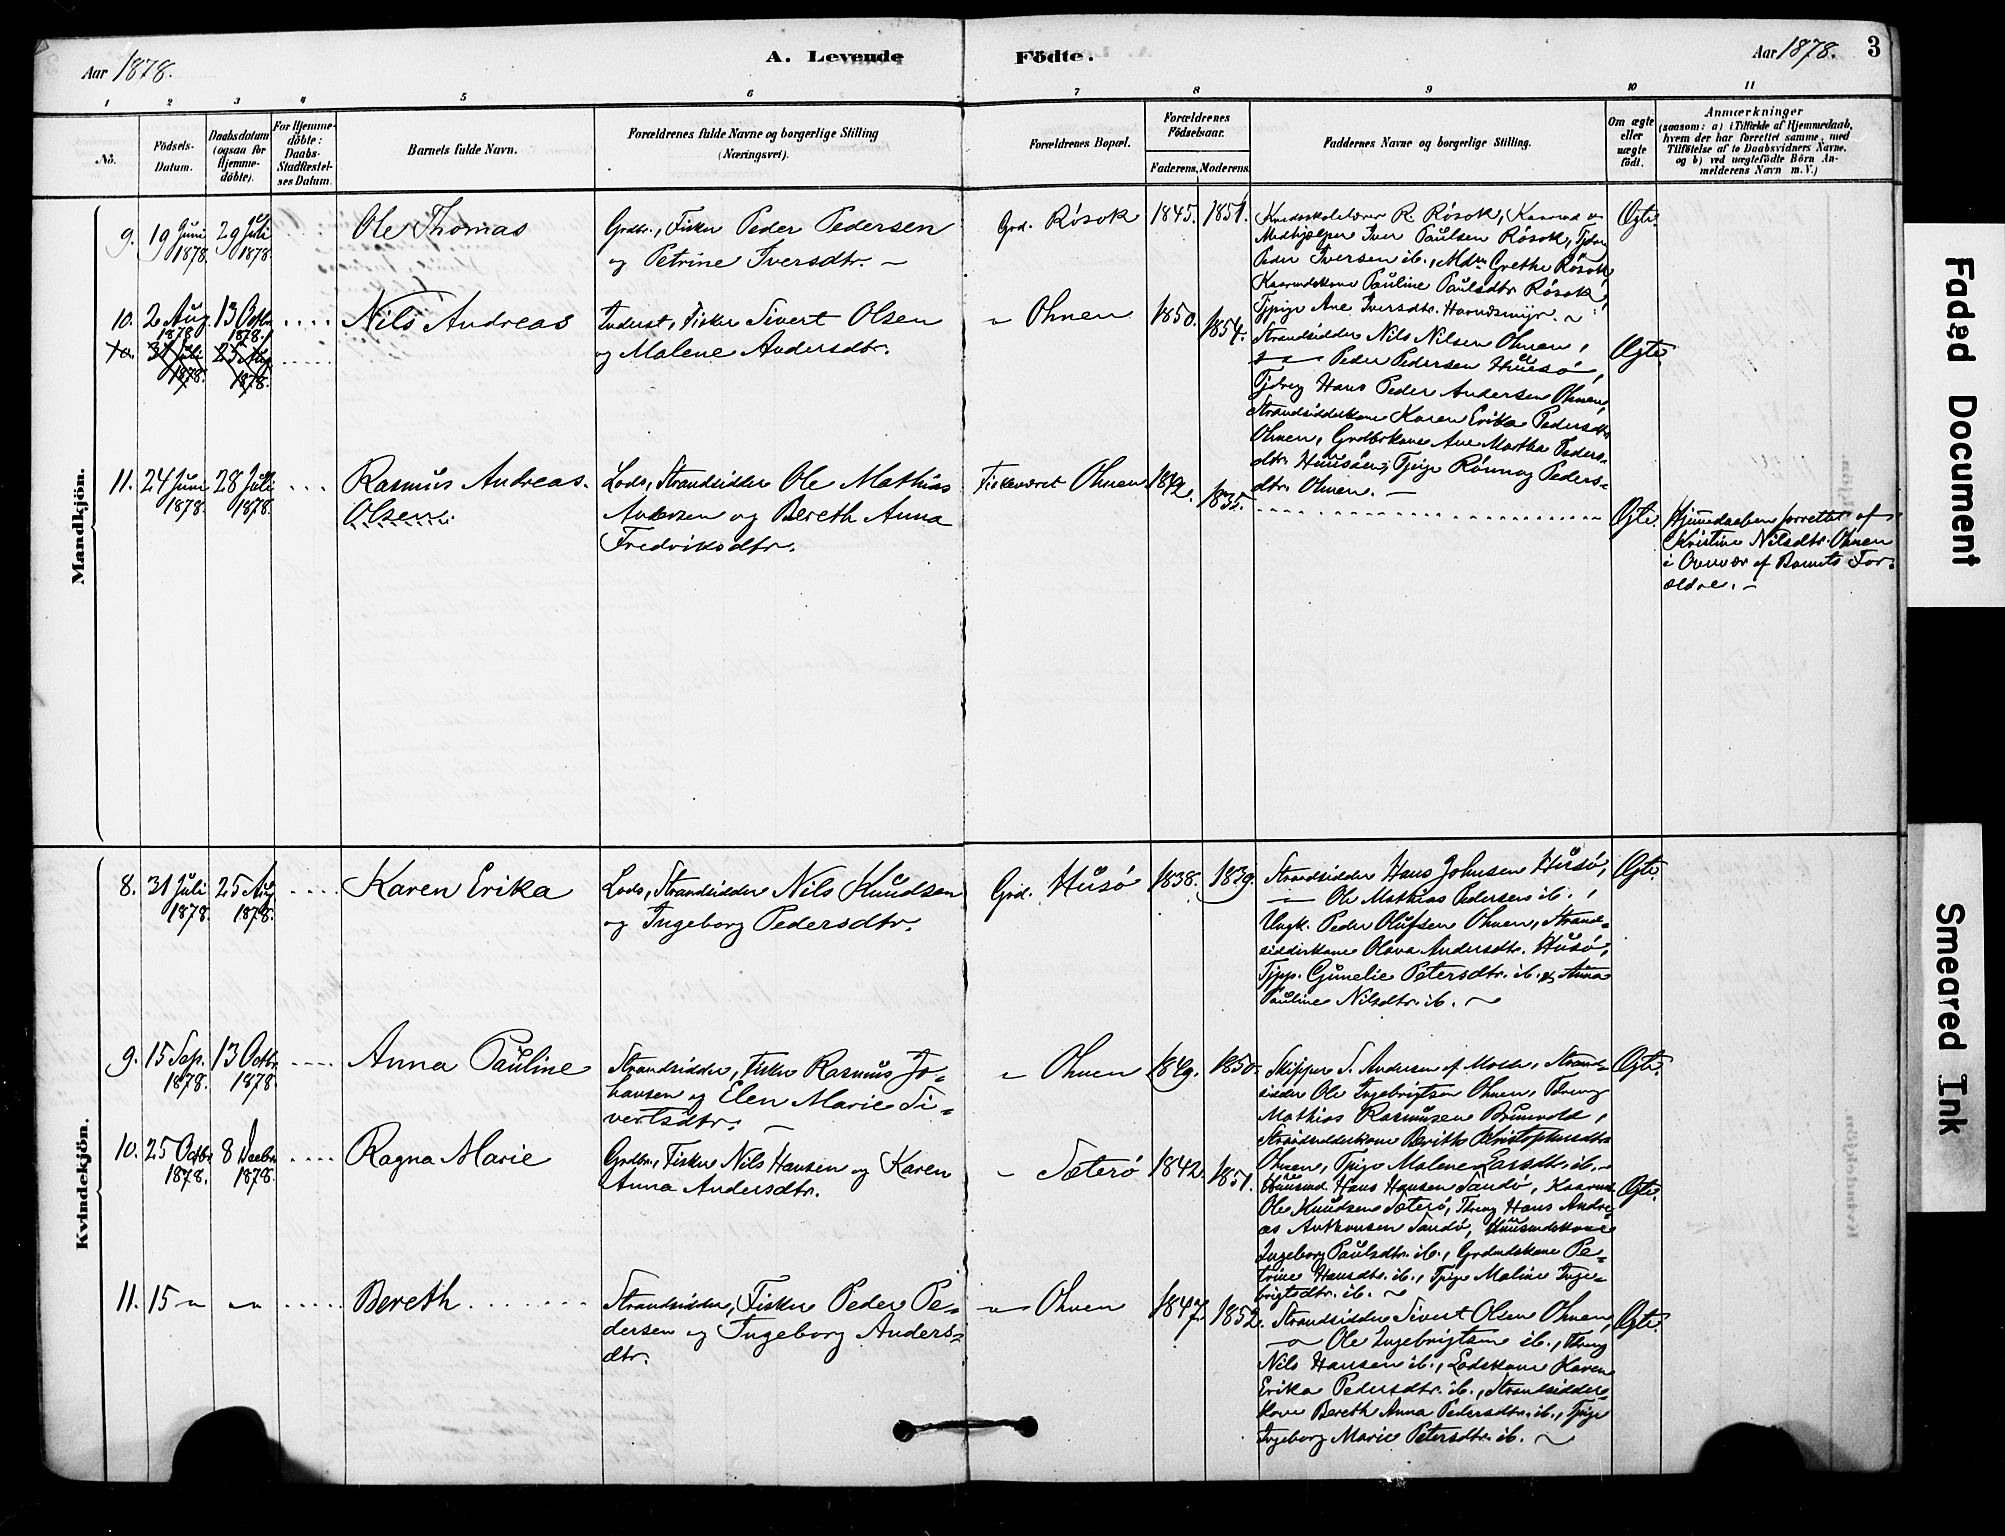 Aar 1878.
A. Levende Födte.
Aar 1878. 3
1 2 3 4 5 6 7 8 9 10 11
No.
Födsels-
Datum.
Daabsdatum
(ogsaa for
Hjemme-
döbte).
For Hjemme-
döbte:
Daabs-
Stadfæstel-
ses Datum.
Barnets fulde Navn.
Forældrenes fulde Navne og borgerlige Stilling
(Næringsvei).
Forældrenes Bopæl.
Forældrenes
Födselsaar.
Faderens. Moderens.
Faddernes Navne og borgerlige Stilling.
Om ægte
eller
uægte
födt.
Anmærkninger
(saasom: a) i Tilfælde af Hjemmedaab,
hvem der har forrettet samme, med
Tilföielse af to Daabsvidners Navne.
og b) ved uægtefödte Börn An-
melderens Navn m. V.)
Mandkjön.
9. 19 Juni 1878. 29 Juli 1878.
Ole Thomas
Grdbr., Fisker Peder Pedersen
og Petrine Iversdtr. –
Grd. Røsok 1845. 1851.
Kredsskolelærer R. Røsok, Kaarmd o
Medhjælper Iver Paulsen Røsok,
Peder Iversen ib., Mdm Grethe Røsok
Kaarmdskone Pauline Paulsdtr. Røsok,
Tjpige Ane Iversdtr.
Ægte.
10. 2 Aug 1878. 13 Octbr 1878.
31 Juli 1878. 25 Aug 1878.
Nils Andreas
Inderst, Fisker Sivert Olsen
og Malene Andersdtr.
" Ohnen 1850. 1854.
Strandsidder Nils Nilsen Ohnen,
Peder Pedersen Husø,
Hans Peder Andersen Ohnen,
Strandsidderkone Karen Erika Pedersdtr
Ohnen, Grdbrkone Ane Martha Peders-
dtr. Tjpige Rønnog Peders-
dtr. Ohnen. –
Ægte.
11. 24 Juni 1878. 28 Juli 1878.
Rasmus Andreas.
Olsen.
Lods, Strandsidder Ole Mathias
Andersen og Bereth Anna
Fredriksdtr.
Fiskeværet Ohnen 1842. 1835.
Ægte.
Hjemmedaaben forrettet af
Kristine Nilsdtr. Ohnen
i Overvær af Barnets For-
ældre. –
Kvindekjön.
8. 31 Juli 1878. 25 Aug 1878.
Karen Erika
Lods, Strandsidder Nils Knudsen
og Ingeborg Pedersdtr.
Grd. Husø 1838. 1839.
Strandsidder Hans Johnsen Husø,
— Ole Mathias Pedersen ib.,
Ungk. Peder Olufsen Ohnen, Strand-
sidderkone Olava Andersdtr. Husø,
Tjpp. Gunelie Petersdtr. ib. & Anna
Pauline Nilsdtr. ib. ~
Ægte.
9. 15 Sep. 1878. 13 Octbr. 1878.
Anna Pauline
Strandsidder, Fisker Rasmus Jo-
hansen og Elen Marie Si-
vertsdtr. –
" Ohnen 1849. 1850.
Skipper S. Andersen af Molde, Strand-
sidder Ole Ingebrigtsen Ohnen,
Mathias Rasmusen
Strandsidderkone Berith Kristophersdtr
Ohnen, Tpige Malene Larsdtr. ib. –
Ægte.
10. 25 Octbr. 1878. 8 Decbr. 1878.
Ragna Marie
Grdbr., Fisker Nils Hansen og Karen
Anna Andersdtr.
" Sæterø 1842. 1851.
Huusmd. Hans Hansen Sandø, Kaarmd
Ole Knudsen Sæterø, Hans Andre-
as Anthonsen Sandø, Huusmdskone
Ingeborg Paulsdtr. ib., Grdmdskone Pe-
trine Hansdtr. ib., Tpige Maline Inge-
brigtsdtr. ib. ~
Ægte.
11. 15 " " "
Bereth
Strandsidder, Fisker Peder Pe-
dersen og Ingeborg Anders-
dtr.
" Ohnen 1847. 1852.
Strandsidder Sivert Olsen Ohnen,
" Ole Ingebrigtsen ib.,
Nils Hansen ib., Lodskone Karen
Erika Pedersdtr. ib., Strandsidder-
kone Bereth Anna Pedersdtr. ib., Tpige
Ingeborg Marie Petersdtr. ib. ~
Ægte.
Faded Document
Smeared Ink